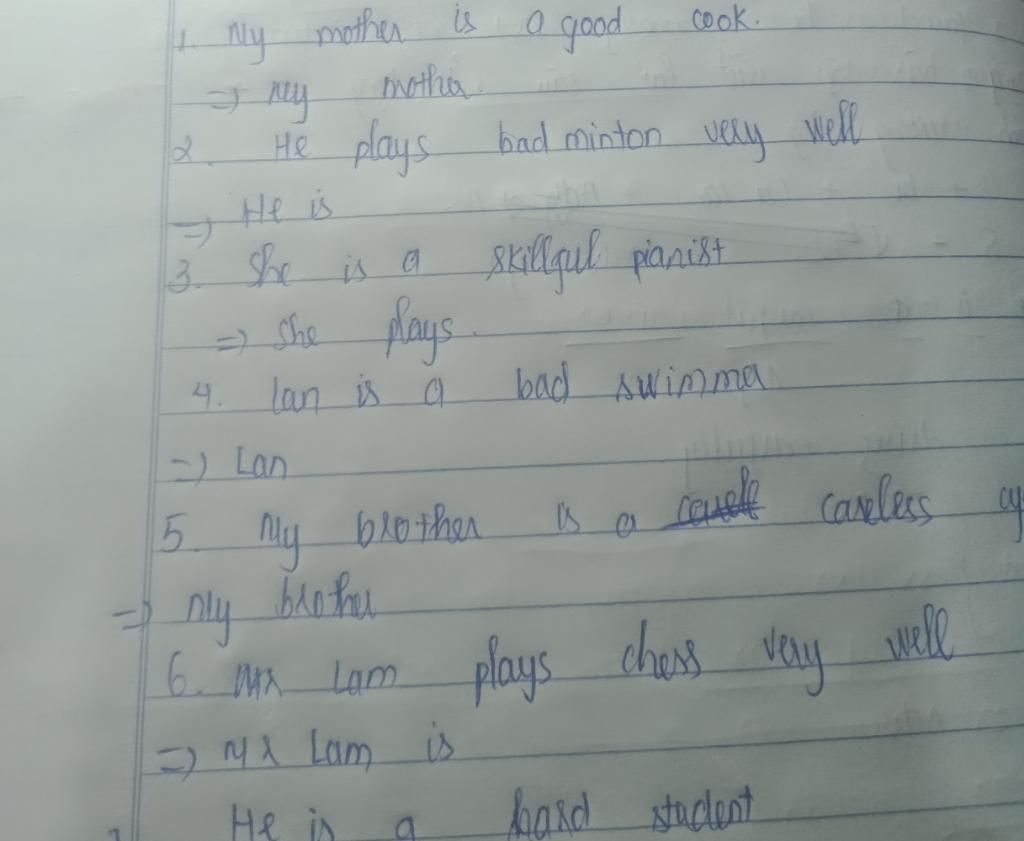 1. My mother is a good cook.
=> My mother
2. He plays badminton very well
=> He is
3. She is a skillful pianist
=> She plays.
4. Lan is a bad swimmer
=> Lan
5. My brother is a careless cy
=> My brother
6. Mr Lam plays chess very well
=> Mr Lam is
He is a hard student